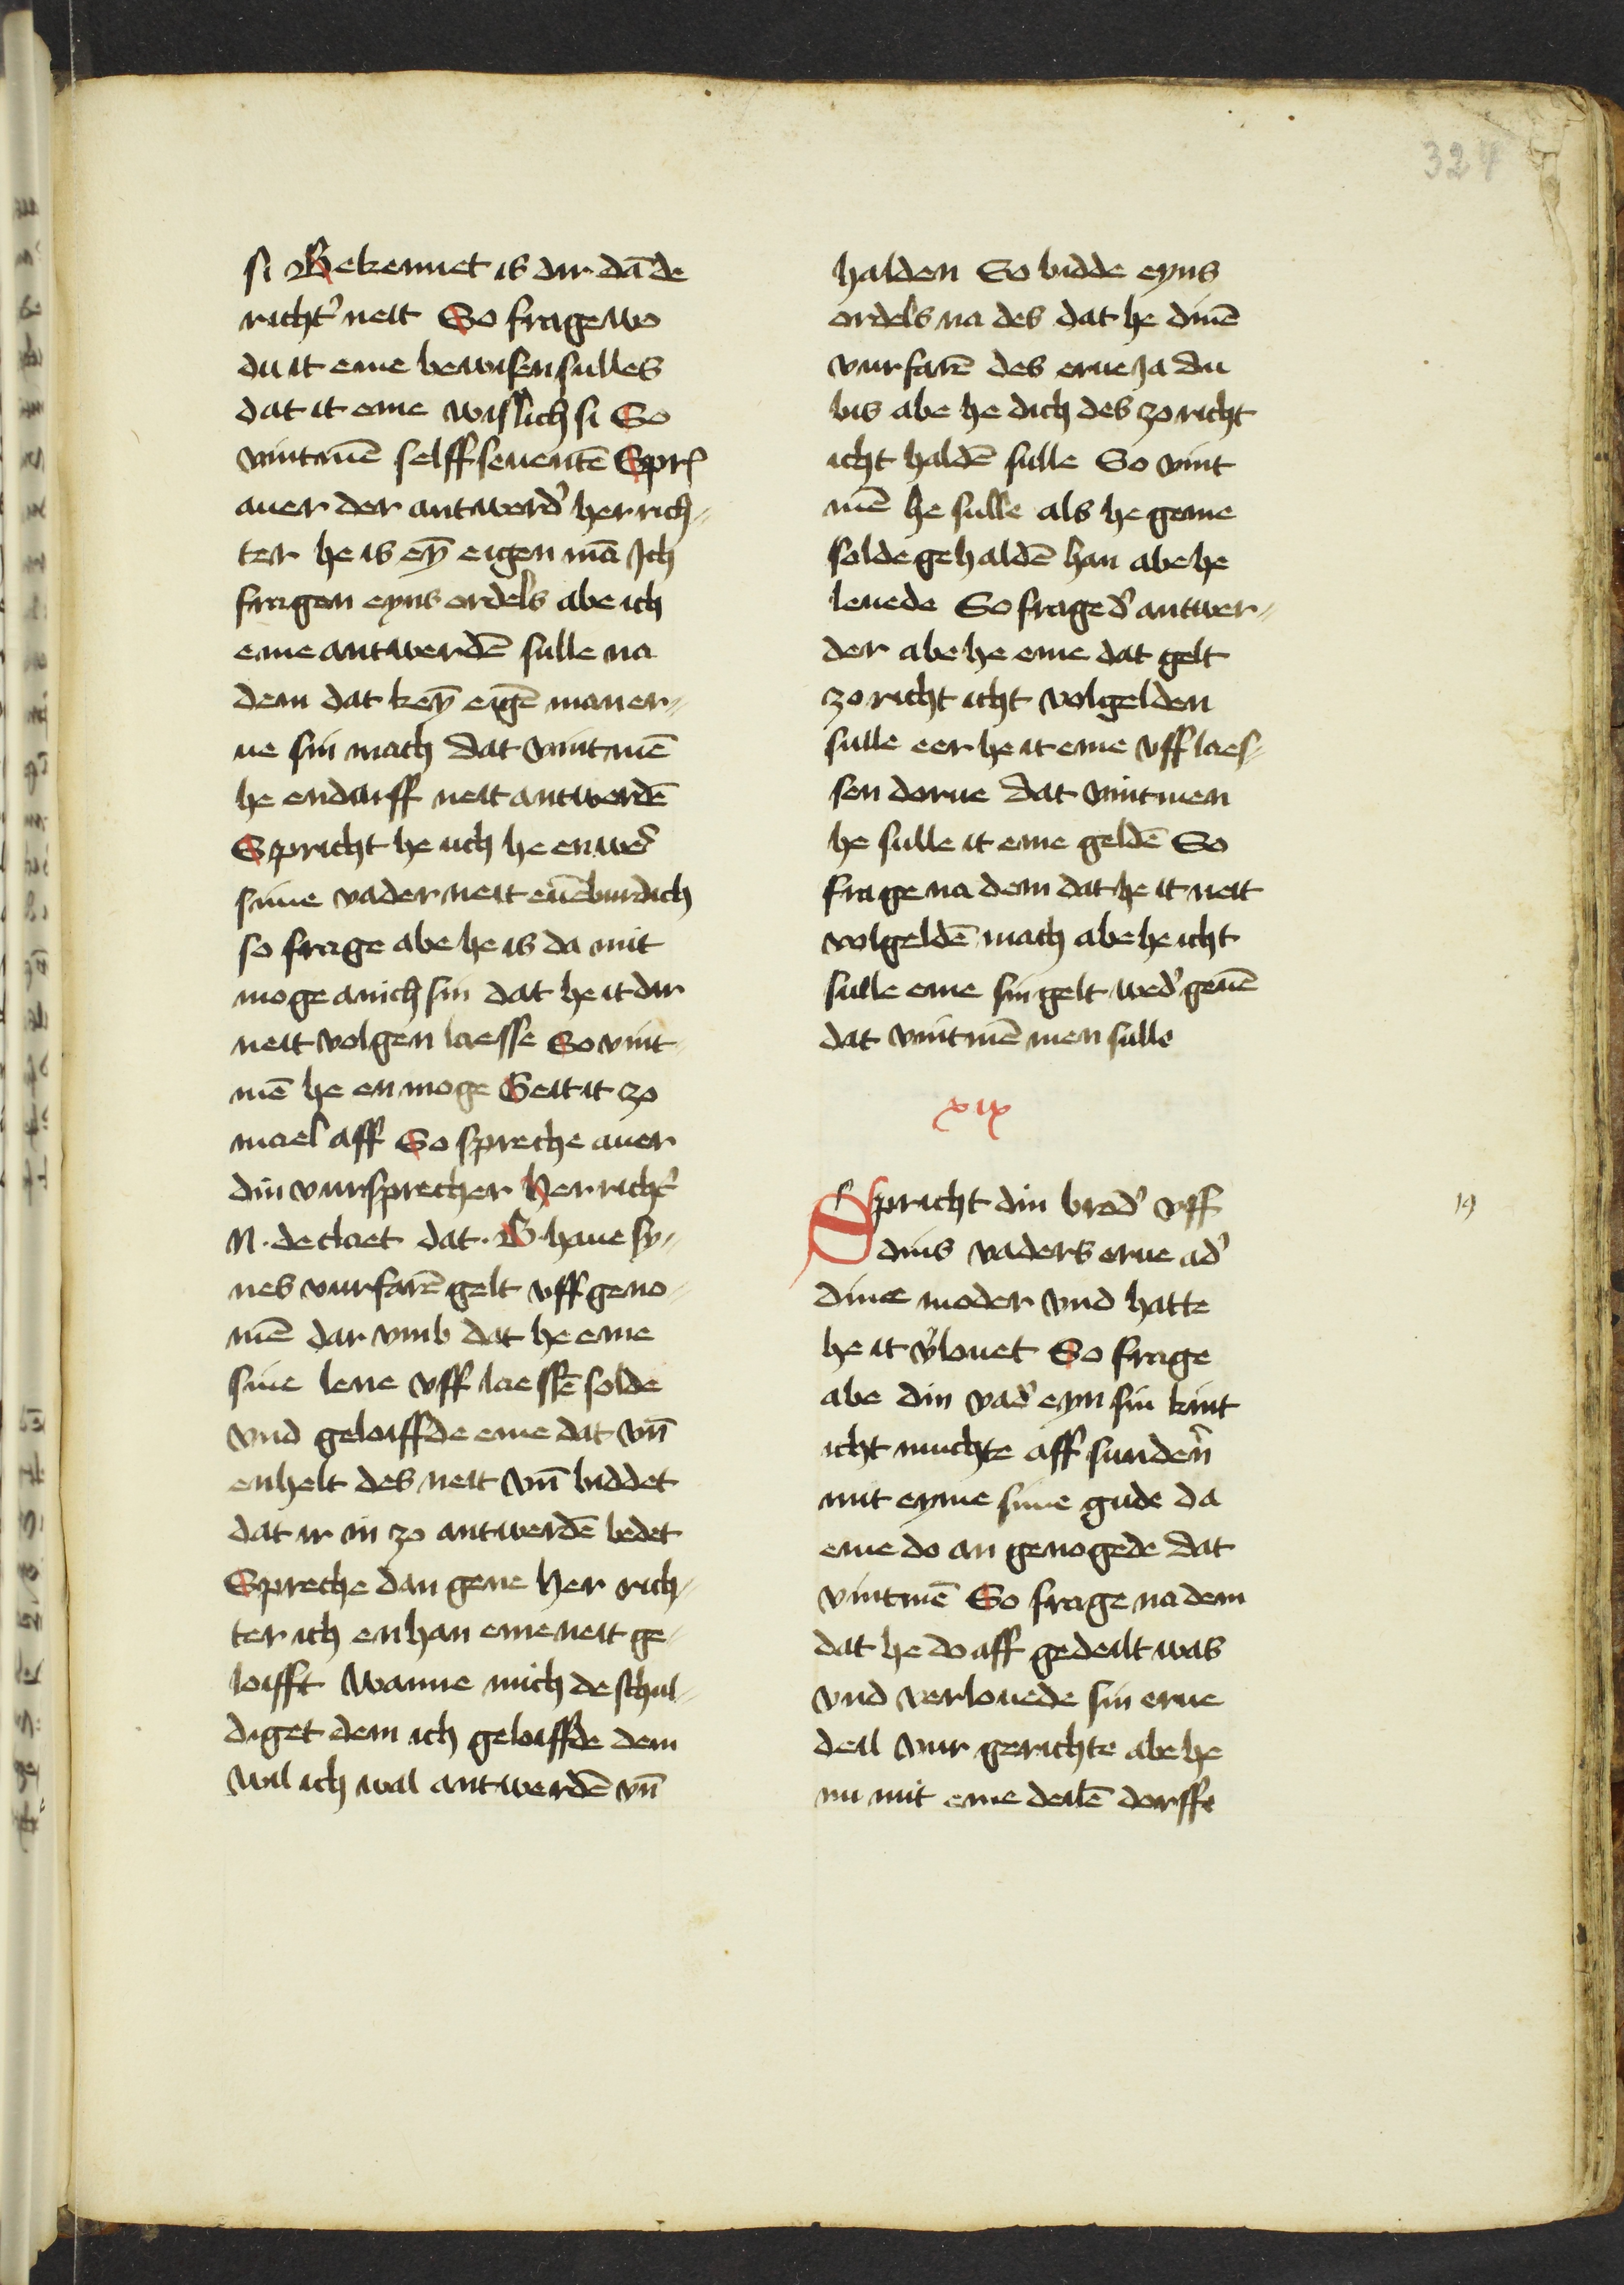 324
si Bekennet is dir dā de
richt᷎ neit So frage wo
du it eme bewisen sulles
dat it eme wislich si So
vint mē selff seuentē Spr
auer der antword᷎ her rich⸗
ter he is eȳ eigen mā Ich
fragen eyns ordels abe ich
eme antwerdē sulle na
dem dat keȳ eigē man er⸗
ue sin mach dat vint mē
he endarff neit antwordē
Spricht he uch he en wer᷎
sime vader neit euēburdich
so frage abe he is da mit
moge anich sin dat he it dir
neit volgen laesse So vint
mē he en moge Geit it zo
mael aff So spreche auer
din vursprecher Her richt᷎
N. de claet dat .B. haue sy⸗
nes vurfarē gelt vff geno⸗
mē dar vmb dat he eme
sine lene vff laessē solde
vnd geloiffde eme dat vn̄
enhelt des neit vn̄ biddet
dat ir in zo antwerdē bedet
Spreche dan gene Her rich⸗
ter ich enhan eme neit ge⸗
loifft Wanne mich de schul⸗
diget dem ich geloiffde dem
wil ich wal antwerdē vn̄
halden So bidde eyns
ordels na des dat he dinē
vurfarē des erue Ja du
bis abe he dich des zo richt
icht haldē sulle So vint
mē he sulle als he geme
solde gehaldē han abe he
leuede So frage d᷎ antwer⸗
der abe he eme dat gelt
zo richt icht volgelden
sulle eer he it eme vff laes⸗
sen dorue dat vint men
he sulle it eme geldē So
frage na dem dat he it neit
volgeldē mach abe he icht
sulle eme sin gelt wed᷎ geuē
dat vint mē men sulle
xix
Spricht din brod᷎ vff
dins vaders erue ad᷎
dine moder vnd hatte
he it v᷎louet So frage
abe din vad᷎ eyn sin kint
icht muchte aff sunder̄n
mit eyme sime gude da
eme do an genogede dat
vint mē So frage na dem
dat he do aff gedeilt was
vnd verlouede sin erue
deil vur gerichte abe he
nu mit eme deilē dorffe
19